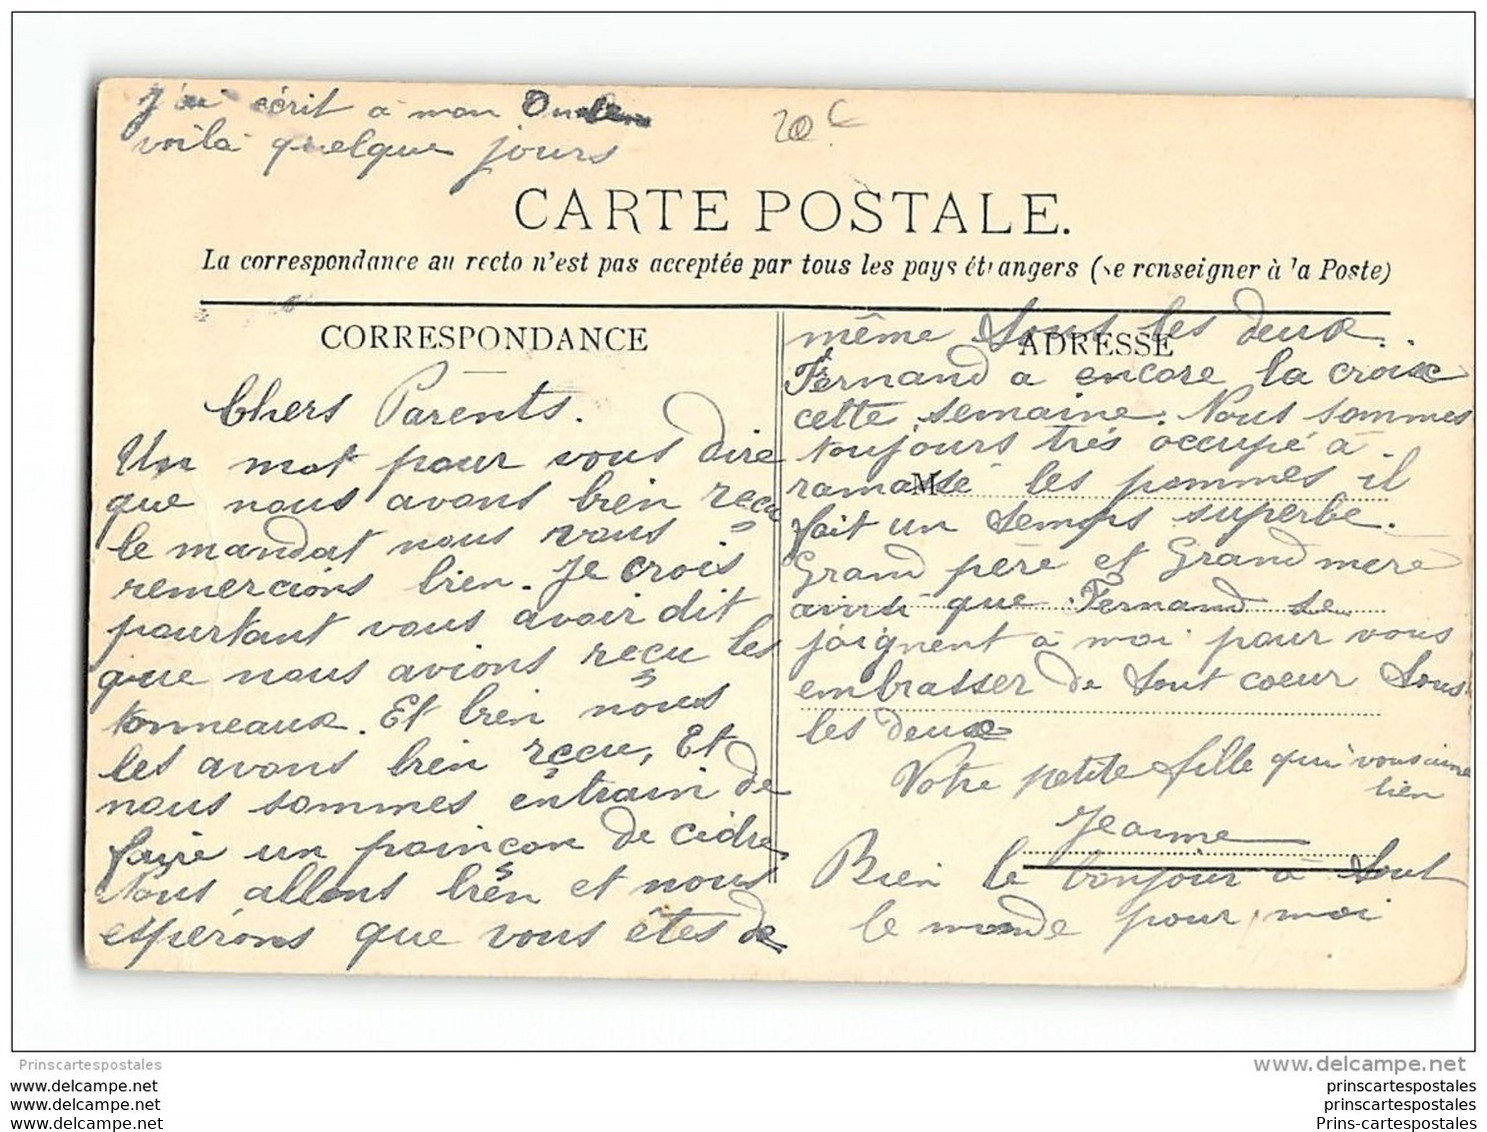 J'ai écrit à mon Oncle
voilà quelque jours
20 €
CARTE POSTALE.
La correspondance au recto n'est pas acceptée par tous les pays étrangers (se renseigner à la Poste)
CORRESPONDANCE
Chers Parents.
Un mot pour vous dire
que nous avons bien reçu
le mandat nous vous
remercions bien. Je crois
pourtant vous avoir dit
que nous avions reçu les
tonneaux. Et bien nous
les avons bien reçu, Et
nous sommes entrain de
faire un poinçon de cidre.
Nous allons bien et nous
espérons que vous êtes de
ADRESSE
M
même tous les deux.
Fernand a encore la croix
cette semaine. Nous sommes
toujours très occupé à
ramassé les pommes il
fait un temps superbe.
Grand père et Grand mère
ainsi que Fernand se
joignent à moi pour vous
embrasser de tout coeur tous
les deux
Votre petite fille qui vous aime
bien
Jeanne
Bien le bonjour à tout
le monde pour moi
Prinscartespostales
www.delcampe.net
www.delcampe.net
www.delcampe.net
www.delcampe.net
prinscartespostales
prinscartespostales
Prins-cartespostales